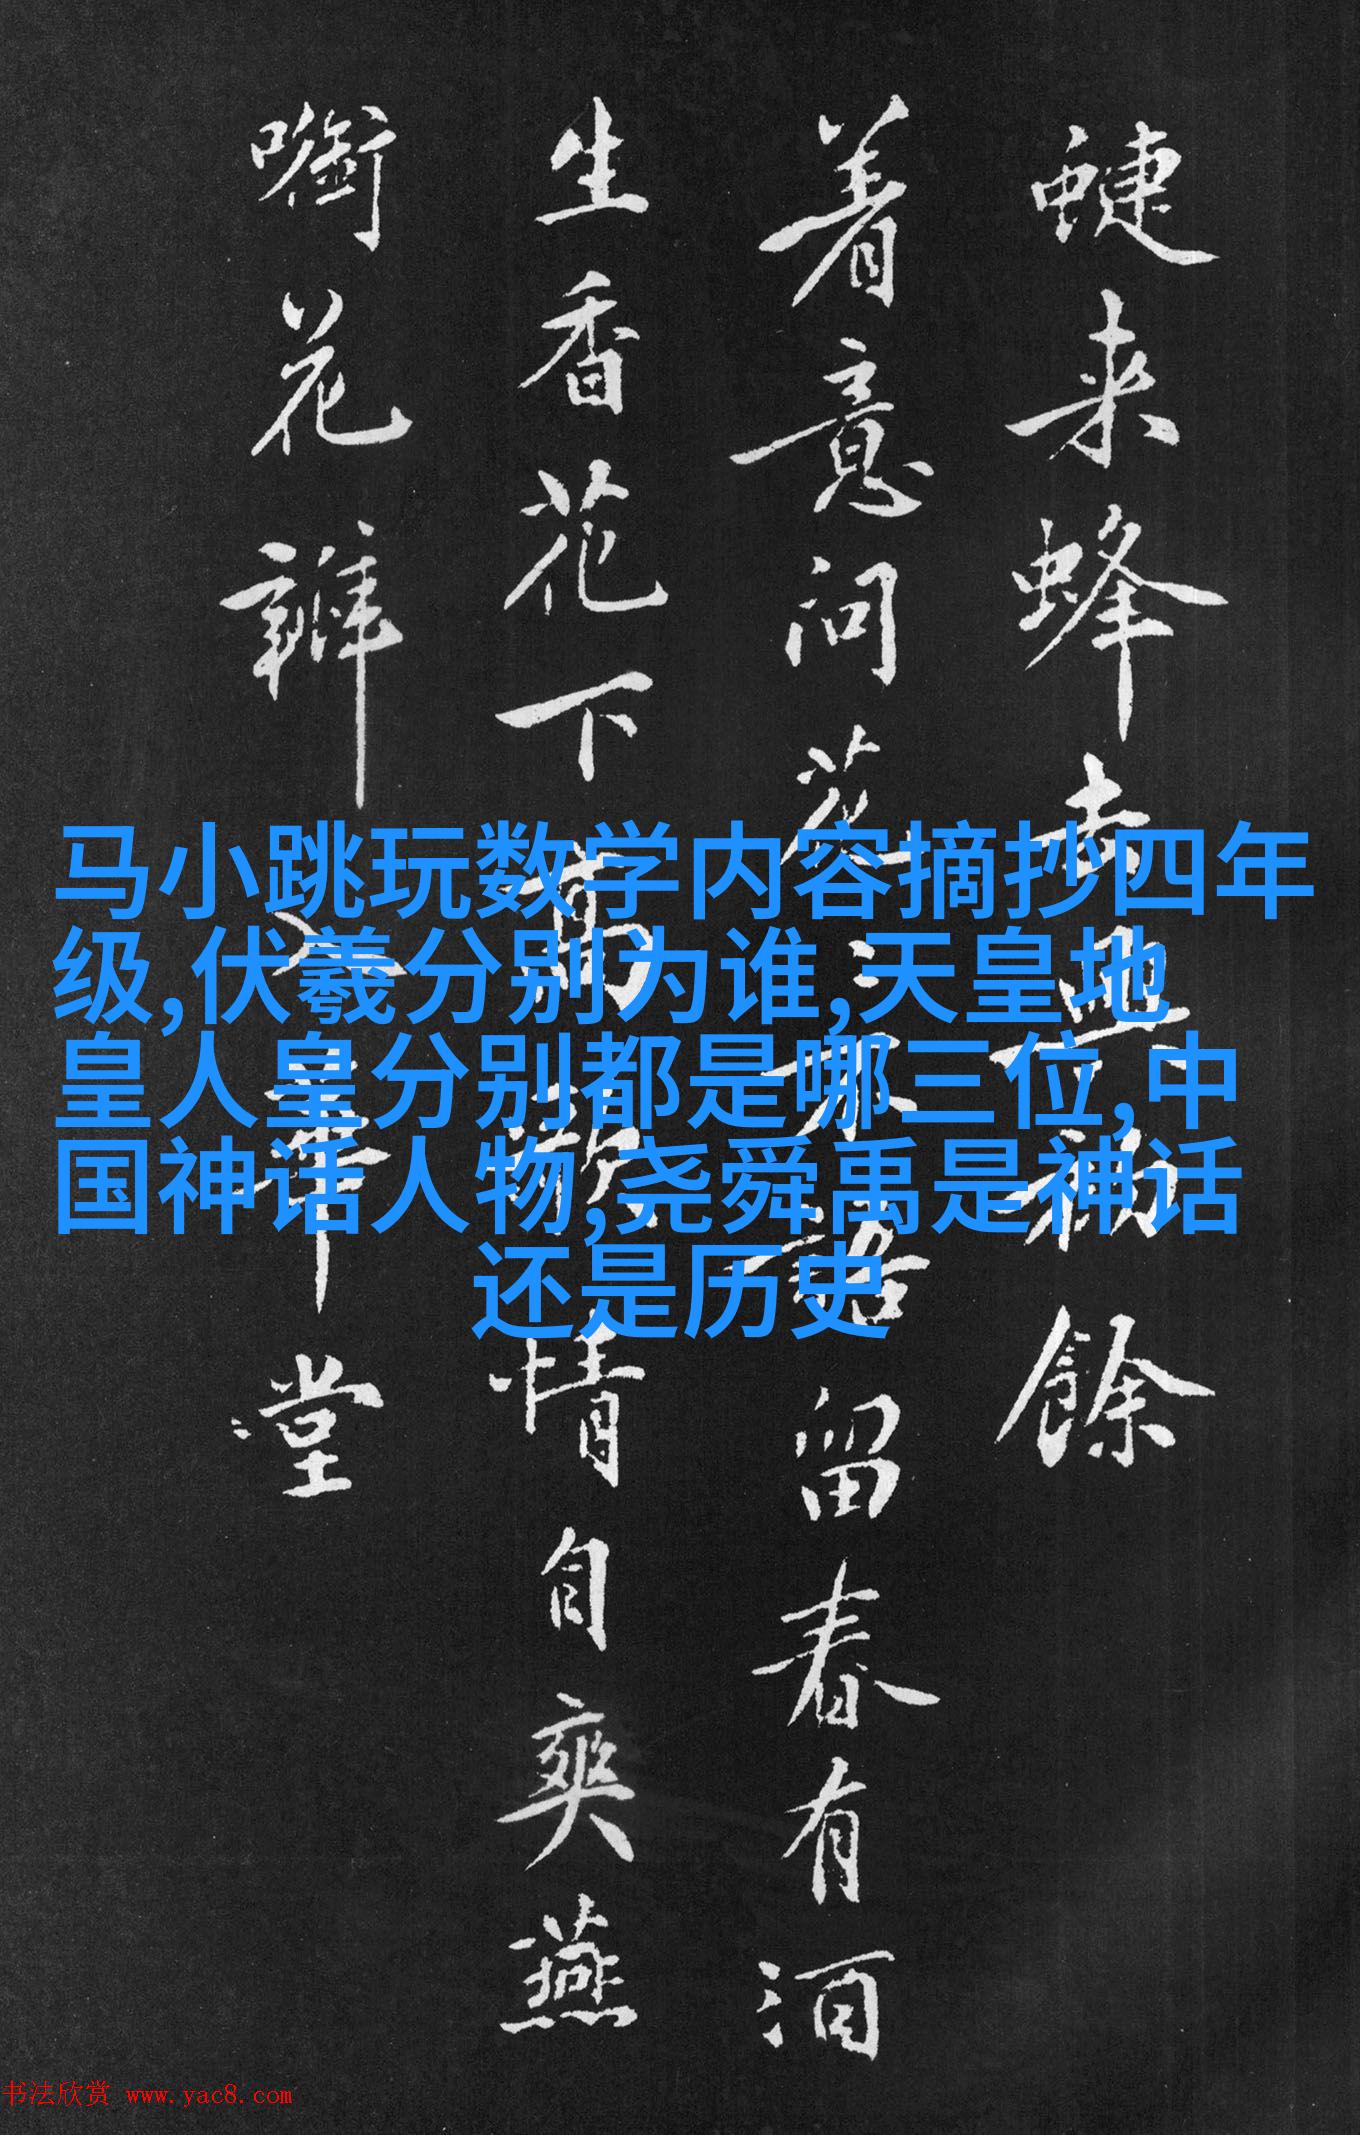 马小跳玩数学内容摘抄四年
级,伏羲分别为谁,天皇地
皇人皇分别都是哪三位,中
国神话人物,尧舜禹是神话
还是历史
来蜂去兴初餘
着意问花花不语留春有酒
生香花下高歌情自爽燕
衔花瓣入華堂
书法欣赏 www.yac8.com